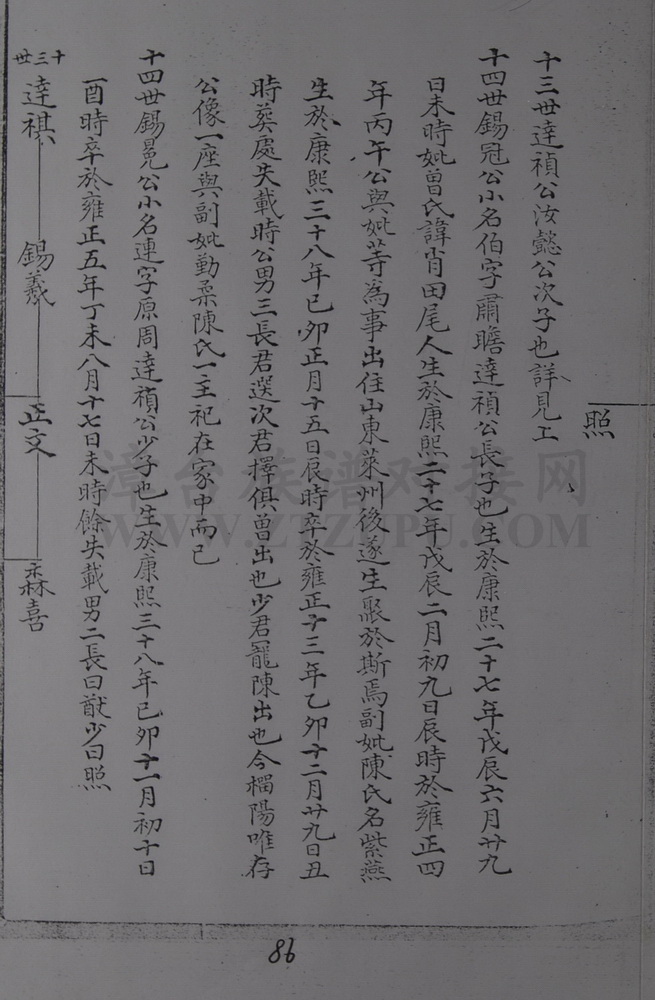 照
十三世達禎公汝懿公次子也詳見上
十四世錫冠公小名伯字肅瞻達禎公長子也生於康熙二十七年戊辰六月廿九
日未時妣曾氏諱肖田尾人生於康熙二十七年戊辰二月初九日辰時於雍正四
年丙午公與妣等為事出住山東萊州後遂生聚於斯焉副妣陳氏名紫燕
生於康熙三十八年己卯正月十五日辰時卒於雍正十三年乙卯十二月廿九日丑
時葬處失載時公男三長君選次君擇俱曾出也少君寵陳出也今榴陽唯存
公像一座與副妣勤柔陳氏一主祀在家中而已
十四世錫冕公小名連字原周達禎公少子也生於康熙三十八年己卯十一月初十日
酉時卒於雍正五年丁未八月十七日未時餘失載男二長曰猷少曰照
十三世
達祺 錫羲 正文 森喜
漳台族谱对接网
WWW.ZTZUPU.COM
86